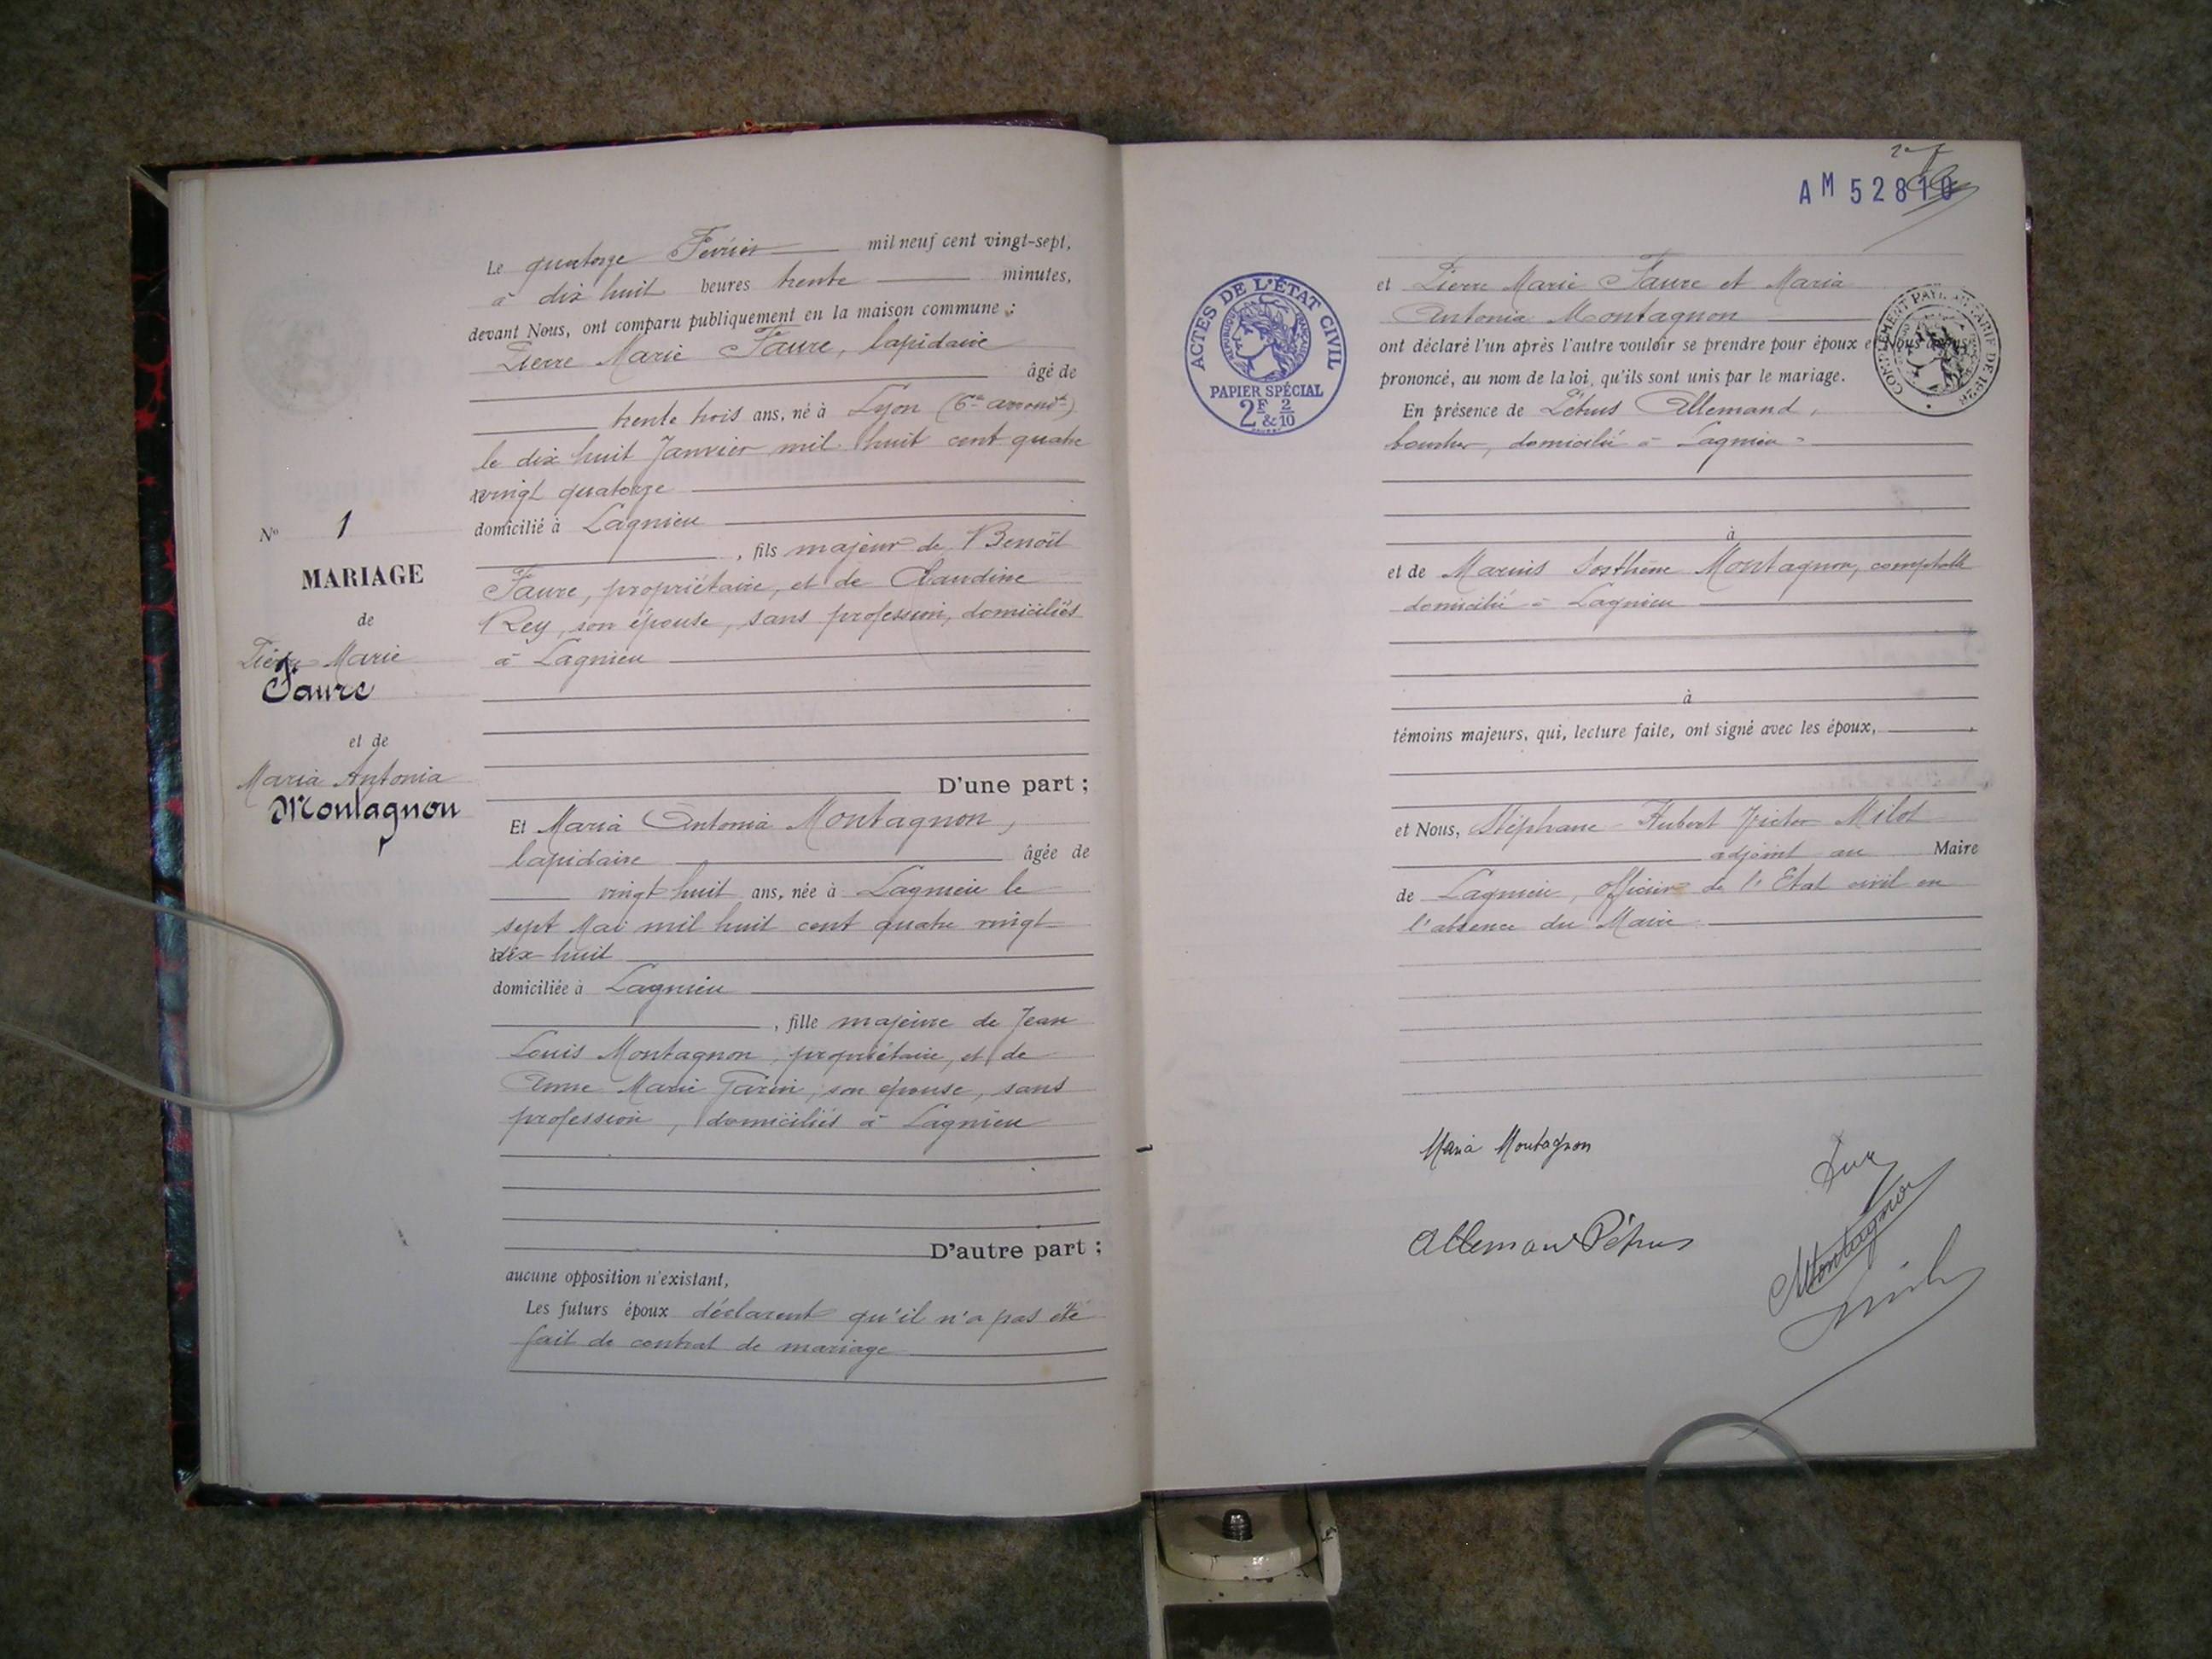 Le quatorze Février mil neuf cent vingt-sept,
à dix huit heures trente minutes,
devant Nous, ont comparu publiquement en la maison commune :
Pierre Marie Faure, lapidaire
âgé de
trente trois ans, né à Lyon (6e arrondt)
le dix huit Janvier mil huit cent quatre
vingt quatorze
domicilié à Lagnieu
, fils majeur de Benoît
Faure, propriétaire, et de Claudine
Rey, son épouse, sans profession, domiciliés
à Lagnieu
D'une part ;
Et Maria Antonia Montagnon,
lapidaire âgée de
vingt huit ans, née à Lagnieu le
sept Mai mil huit cent quatre vingt
dix huit
domiciliée à Lagnieu
, fille majeure de Jean
Louis Montagnon, propriétaire, et de
Anne Marie Garin, son épouse, sans
profession, domiciliés à Lagnieu
D'autre part ;
aucune opposition n'existant,
Les futurs époux déclarent qu'il n'a pas été
fait de contrat de mariage
No 1
MARIAGE
de
Pierre Marie
Faure
et de
Maria Antonia
Montagnon
AM 52810
ACTES DE L'ÉTAT CIVIL
RÉPUBLIQUE FRANÇAISE
PAPIER SPÉCIAL
2F & 2/10
COMPLÉMENT PAYÉ AU TARIF DE 1926
et Pierre Marie Faure et Maria
Antonia Montagnon
ont déclaré l'un après l'autre vouloir se prendre pour époux et Nous avons
prononcé, au nom de la loi, qu'ils sont unis par le mariage.
En présence de Pétrus Allemand,
boucher, domicilié à Lagnieu
à
et de Marius Sosthène Montagnon, comptable
domicilié à Lagnieu
à
témoins majeurs, qui, lecture faite, ont signé avec les époux,
et Nous, Stéphane Hubert Victor Milot
adjoint au Maire
de Lagnieu, officier de l'Etat civil en
l'absence du Maire
Maria Montagnon
Allemand Pétrus
Montagnon